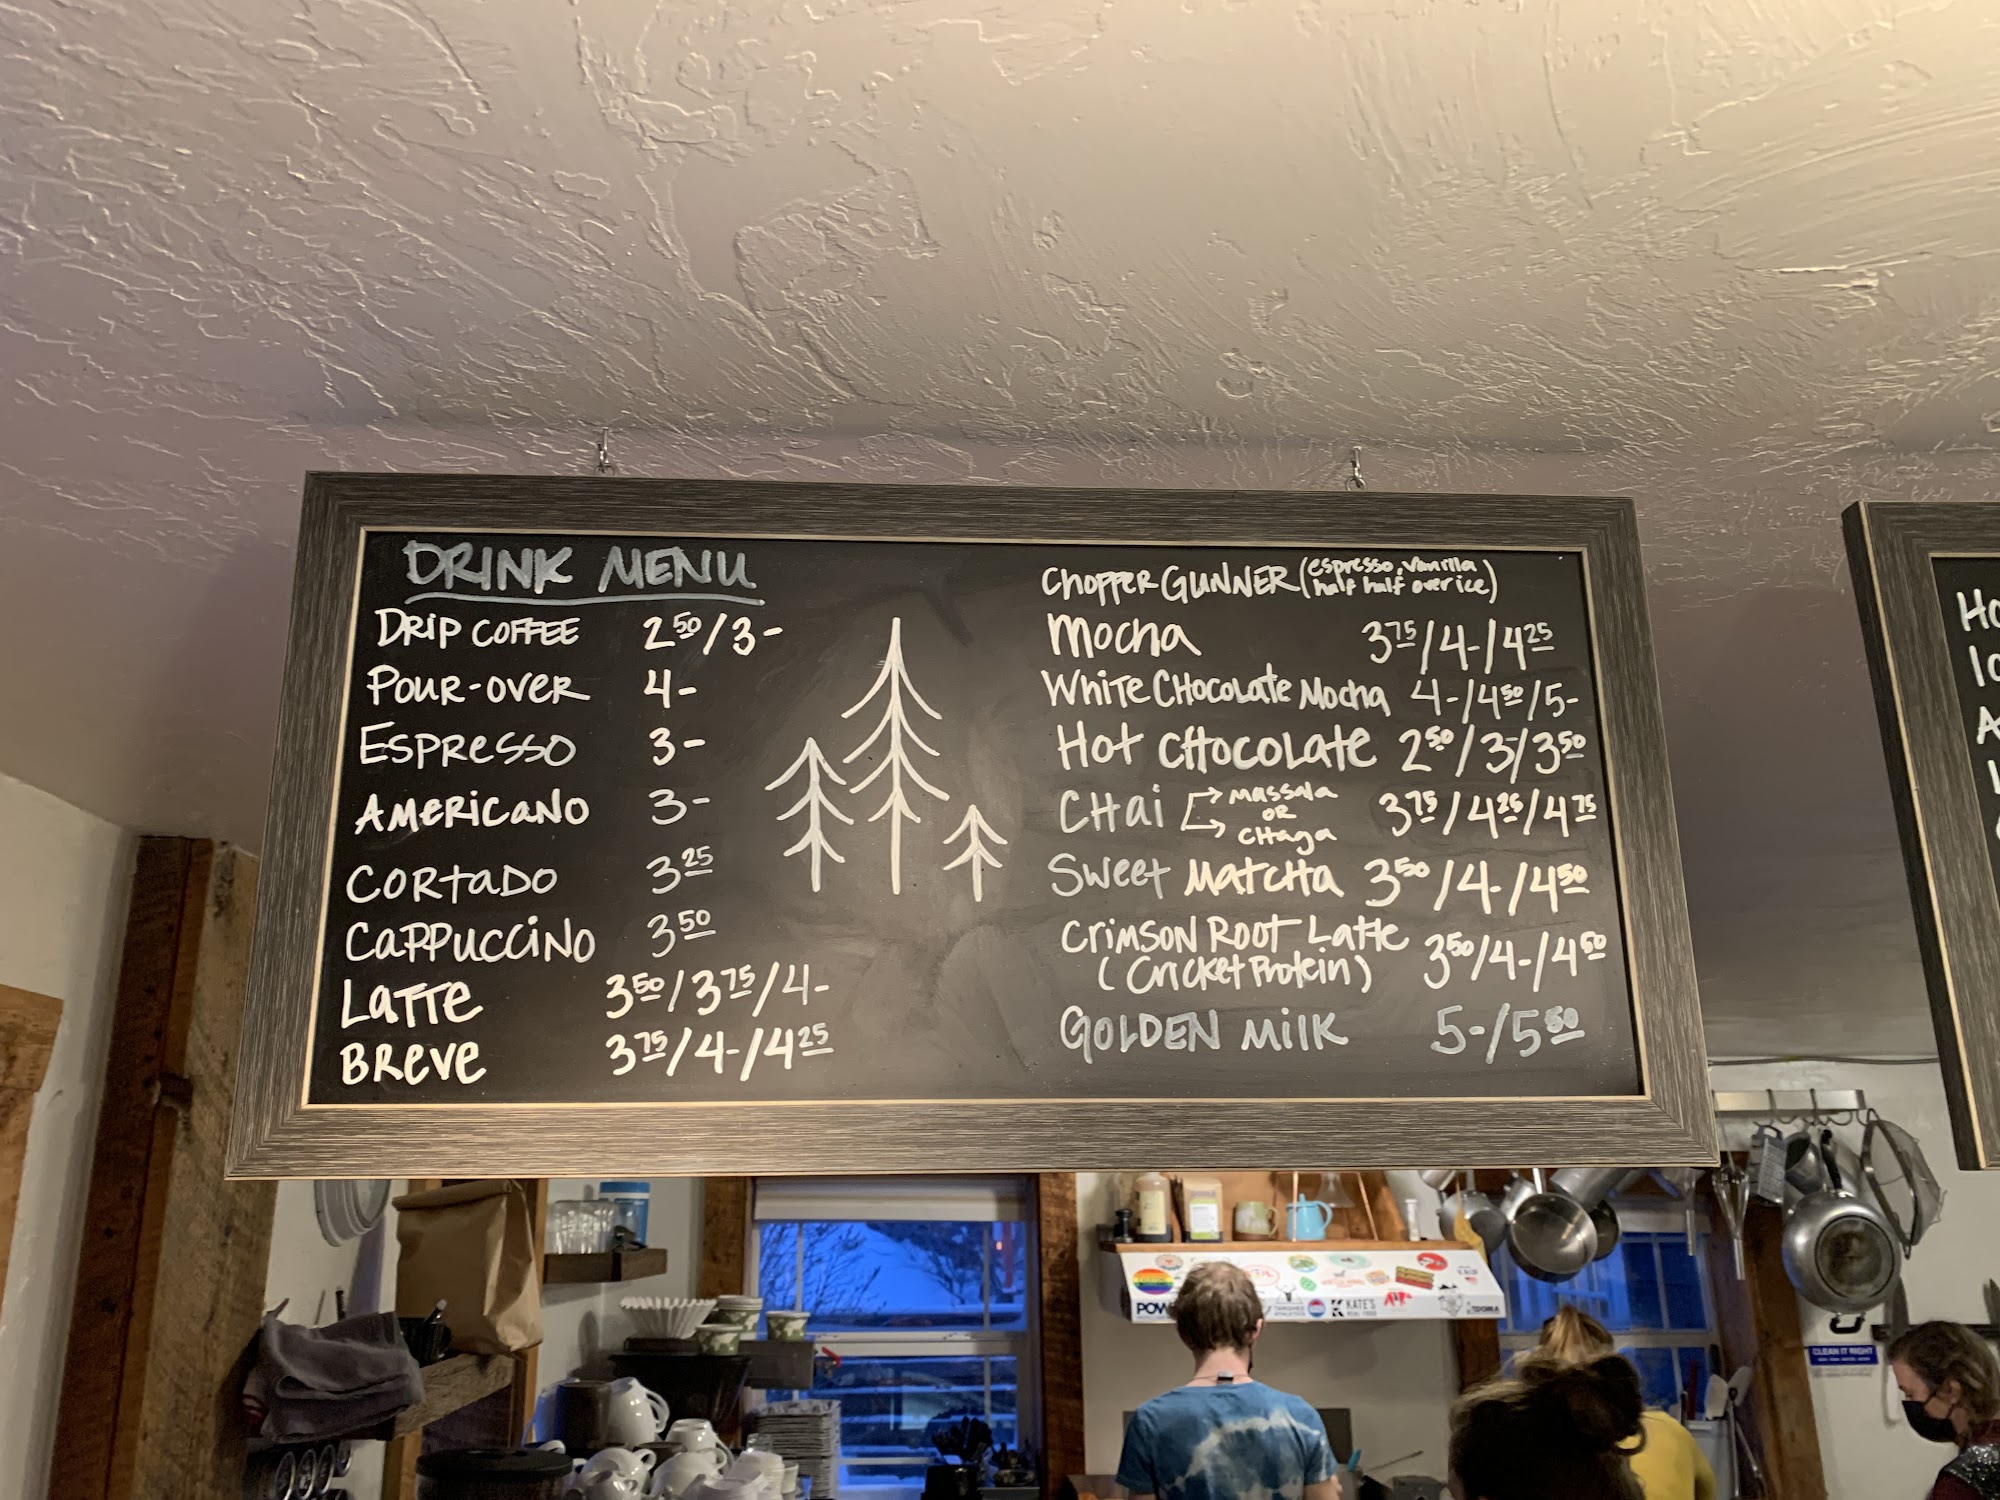 DRINK MENU
DRIP COFFEE 2.50/3-
POUR-OVER 4-
ESPRESSO 3-
AMERICANO 3-
CORTADO 3.25
CAPPUCCINO 3.50
LATTE 3.50/3.75/4-
BREVE 3.75/4-/4.25
CHOPPER GUNNER (espresso, vanilla
half half over ice)
Mocha 3.75/4-/4.25
WHITE CHOCOLATE MOCHA 4-/4.50/5-
HOT CHOCOLATE 2.50/3/3.50
CHAI massala OR CHAGA 3.75/4.25/4.75
SWEET MATCHA 3.50/4-/4.50
CRIMSON ROOT LATTE 3.50/4-/4.50
(CRICKET PROTEIN)
GOLDEN MILK 5-/5.50
POW
KATE'S
REAL FOOD
CLEAN IT RIGHT